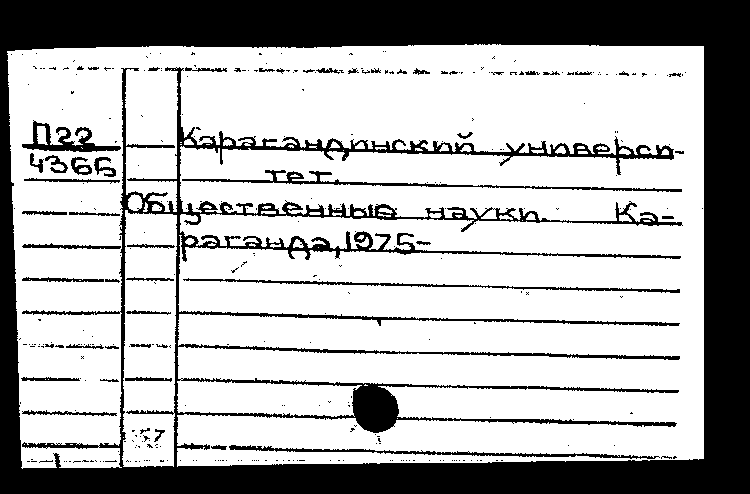 П22 Карагандинский универси-
4366 тет.
Общественные науки. Ка-
раганда, 1975-
57